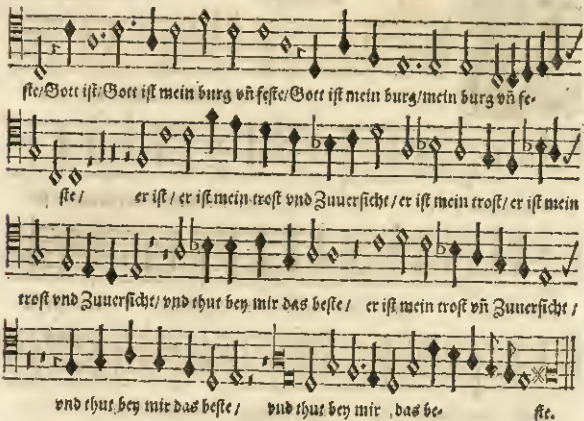 ſte/Gott iſt/Gott iſt mein burg vñ feſte/Gott iſt mein burg/mein burg vñ fe-
ſte/ er iſt/er iſt mein troſt vnd Zuuerſicht/er iſt mein troſt/er iſt mein
troſt vnd Zuuerſicht/vnd thut bey mir das beſte/ er iſt mein troſt vñ Zuuerſicht/
vnd thut bey mir das beſte/ vnd thut bey mir das be- ſte.